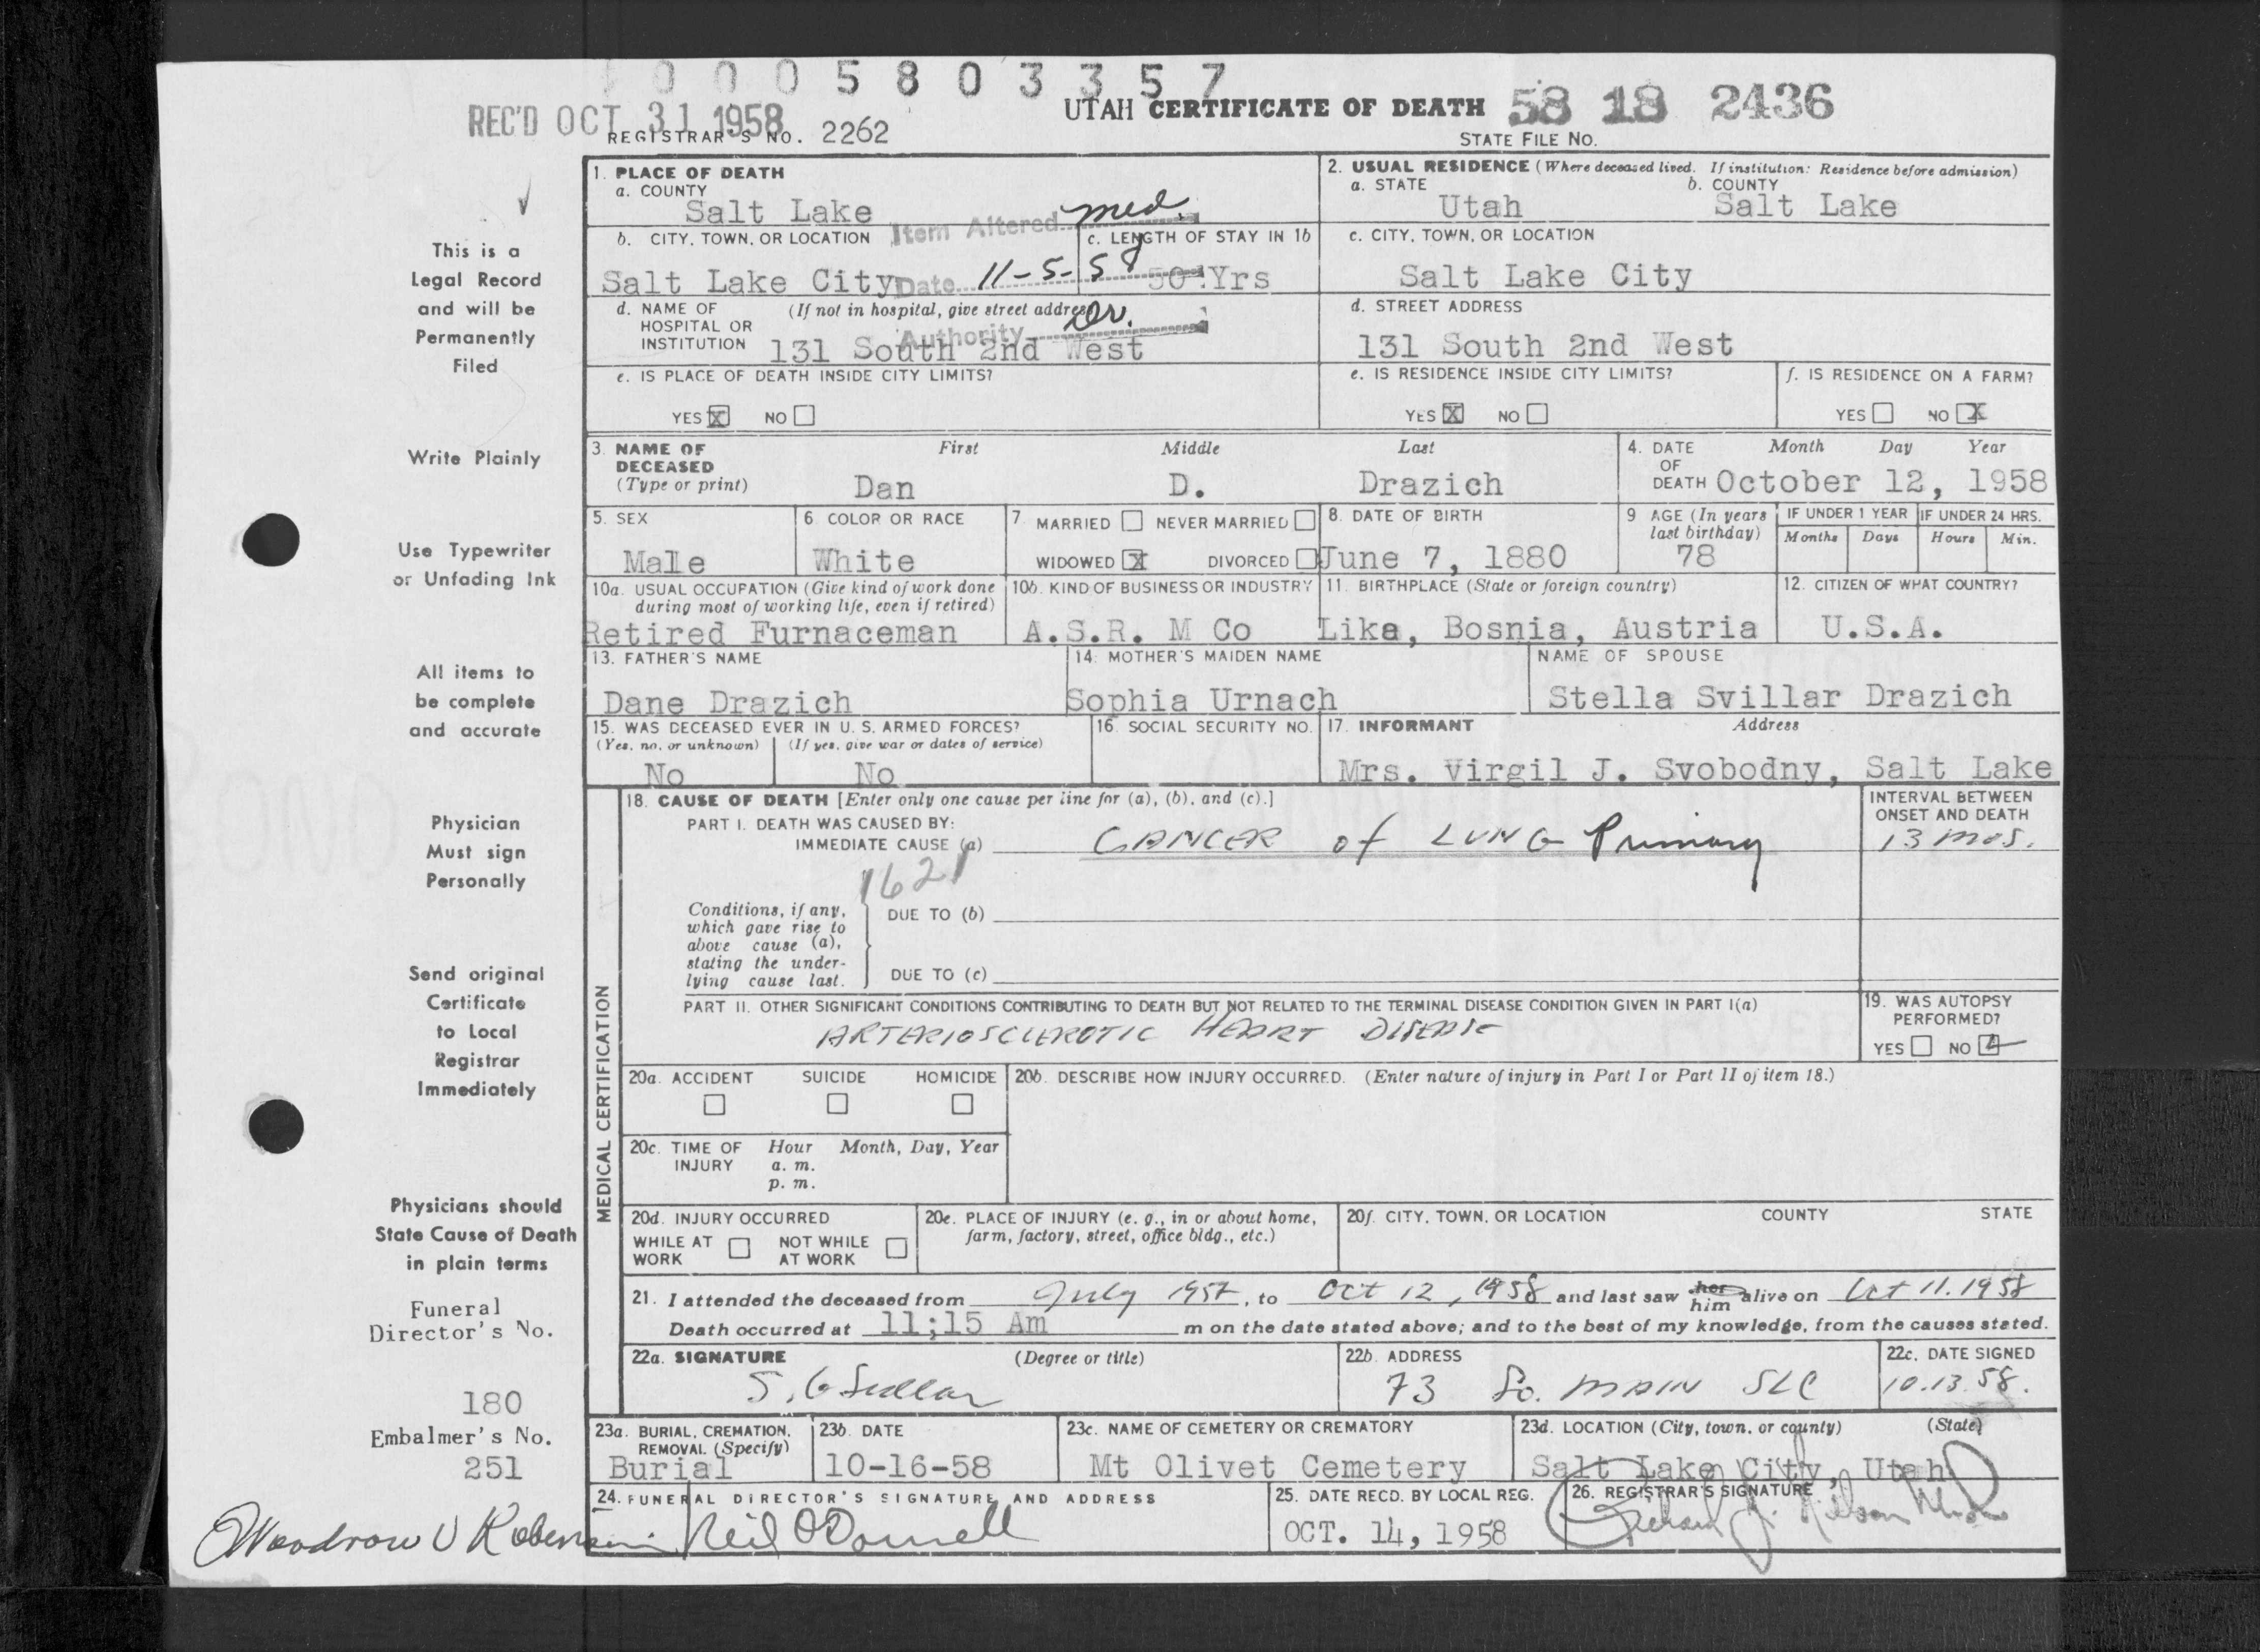 0005803357
REC'D OCT 31 1958
REGISTRAR'S NO. 2262
UTAH CERTIFICATE OF DEATH 58 18 2436
STATE FILE NO.
This is a
Legal Record
and will be
Permanently
Filed
Write Plainly
Use Typewriter
or Unfading Ink
All items to
be complete
and accurate
Physician
Must sign
Personally
Send original
Certificate
to Local
Registrar
Immediately
Physicians should
State Cause of Death
in plain terms
Funeral
Director's No.
180
Embalmer's No.
251
1. PLACE OF DEATH
a. COUNTY
Salt Lake
Item Altered med.
b. CITY, TOWN, OR LOCATION
Salt Lake City
Date 11-5-58
c. LENGTH OF STAY IN 1b
50 Yrs
d. NAME OF HOSPITAL OR INSTITUTION (If not in hospital, give street address)
Authority Dr.
131 South 2nd West
e. IS PLACE OF DEATH INSIDE CITY LIMITS?
YES X NO
2. USUAL RESIDENCE (Where deceased lived. If institution: Residence before admission)
a. STATE
Utah
b. COUNTY
Salt Lake
c. CITY, TOWN, OR LOCATION
Salt Lake City
d. STREET ADDRESS
131 South 2nd West
e. IS RESIDENCE INSIDE CITY LIMITS?
YES X NO
f. IS RESIDENCE ON A FARM?
YES NO X
3. NAME OF DECEASED (Type or print)
First Middle Last
Dan D. Drazich
4. DATE OF DEATH Month Day Year
October 12, 1958
5. SEX
Male
6. COLOR OR RACE
White
7. MARRIED NEVER MARRIED
WIDOWED X DIVORCED
8. DATE OF BIRTH
June 7, 1880
9 AGE (In years last birthday)
78
IF UNDER 1 YEAR
Months Days
IF UNDER 24 HRS.
Hours Min.
10a. USUAL OCCUPATION (Give kind of work done during most of working life, even if retired)
Retired Furnaceman
10b. KIND OF BUSINESS OR INDUSTRY
A.S.R. M Co
11. BIRTHPLACE (State or foreign country)
Lika, Bosnia, Austria
12. CITIZEN OF WHAT COUNTRY?
U.S.A.
13. FATHER'S NAME
Dane Drazich
14. MOTHER'S MAIDEN NAME
Sophia Urnach
NAME OF SPOUSE
Stella Svillar Drazich
15. WAS DECEASED EVER IN U. S. ARMED FORCES?
(Yes, no, or unknown) (If yes, give war or dates of service)
No No
16. SOCIAL SECURITY NO.
17. INFORMANT Address
Mrs. Virgil J. Svobodny, Salt Lake
MEDICAL CERTIFICATION
18. CAUSE OF DEATH [Enter only one cause per line for (a), (b), and (c).]
PART I. DEATH WAS CAUSED BY:
IMMEDIATE CAUSE (a) CANCER of LUNG Primary
1621
INTERVAL BETWEEN ONSET AND DEATH
13 mos.
Conditions, if any, which gave rise to above cause (a), stating the underlying cause last.
DUE TO (b)
DUE TO (c)
PART II. OTHER SIGNIFICANT CONDITIONS CONTRIBUTING TO DEATH BUT NOT RELATED TO THE TERMINAL DISEASE CONDITION GIVEN IN PART I(a)
ARTERIOSCLEROTIC HEART DISEASE
19. WAS AUTOPSY PERFORMED?
YES NO
20a. ACCIDENT SUICIDE HOMICIDE
20b. DESCRIBE HOW INJURY OCCURRED. (Enter nature of injury in Part I or Part II of item 18.)
20c. TIME OF INJURY Hour Month, Day, Year
a. m.
p. m.
20d. INJURY OCCURRED
WHILE AT WORK NOT WHILE AT WORK
20e. PLACE OF INJURY (e. g., in or about home, farm, factory, street, office bldg., etc.)
20f. CITY, TOWN, OR LOCATION COUNTY STATE
21. I attended the deceased from July 1957, to Oct 12, 1958 and last saw her him alive on Oct 11. 1958
Death occurred at 11;15 Am m on the date stated above; and to the best of my knowledge, from the causes stated.
22a. SIGNATURE (Degree or title)
22b. ADDRESS
73 So. MAIN SLC
22c. DATE SIGNED
10.13.58.
23a. BURIAL, CREMATION, REMOVAL (Specify)
Burial
23b. DATE
10-16-58
23c. NAME OF CEMETERY OR CREMATORY
Mt Olivet Cemetery
23d. LOCATION (City, town, or county) (State)
Salt Lake City, Utah
24. FUNERAL DIRECTOR'S SIGNATURE AND ADDRESS
Woodrow Neil O'Donnell
25. DATE RECD. BY LOCAL REG.
OCT. 14, 1958
26. REGISTRAR'S SIGNATURE